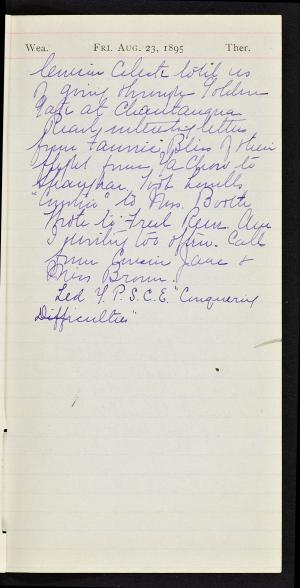 Wea. FRI. AUG. 23, 1895 Ther.
Cousin Celeste told us
of going through Golden
Gate at Chautauqua
Read interesting letter
from Fannie Bliss of their
flight from to
Shanghai. Took
" " to Mrs. Booth
Wrote to Fred Am
I writing too often. Call
from Cousin Jane &
Miss Brown.
Led Y.P.S.C.E. "Conquering
Difficulties"